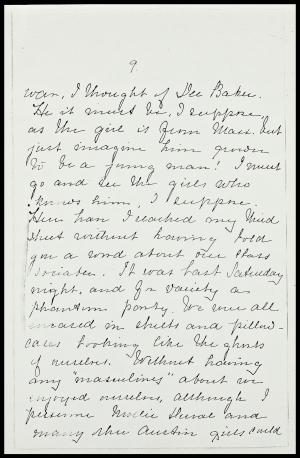 9.
war, I thought of Lee Baker.
He it must be, I suppose,
as the girl is from Mass. but
just imagine him grown
to be a young man! I must
go and see the girls who
knows him, I suppose.
Here have I reached my third
sheet without having told
you a word about our class
sociable. It was last Saturday
night, and for variety a
phantom party. We were all
encased in sheets and pillow-
cases looking like the ghosts
of ourselves. Without having
any "masculines" about we
enjoyed ourselves, although I
presume Mollie and
many other Austin girls could